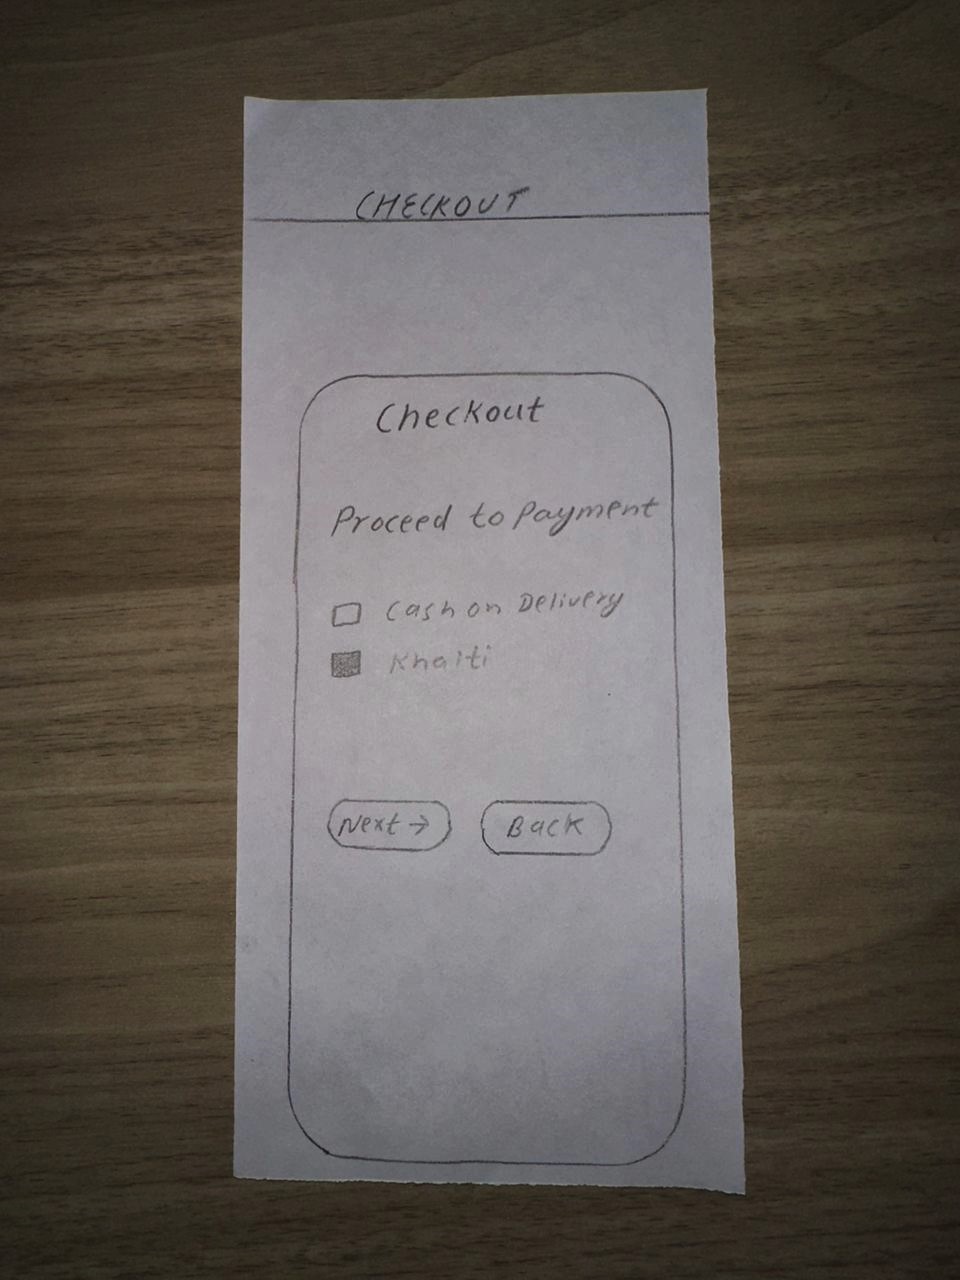 CHECKOUT
Checkout
Proceed to Payment
Cash on Delivery
Khalti
Next →
Back